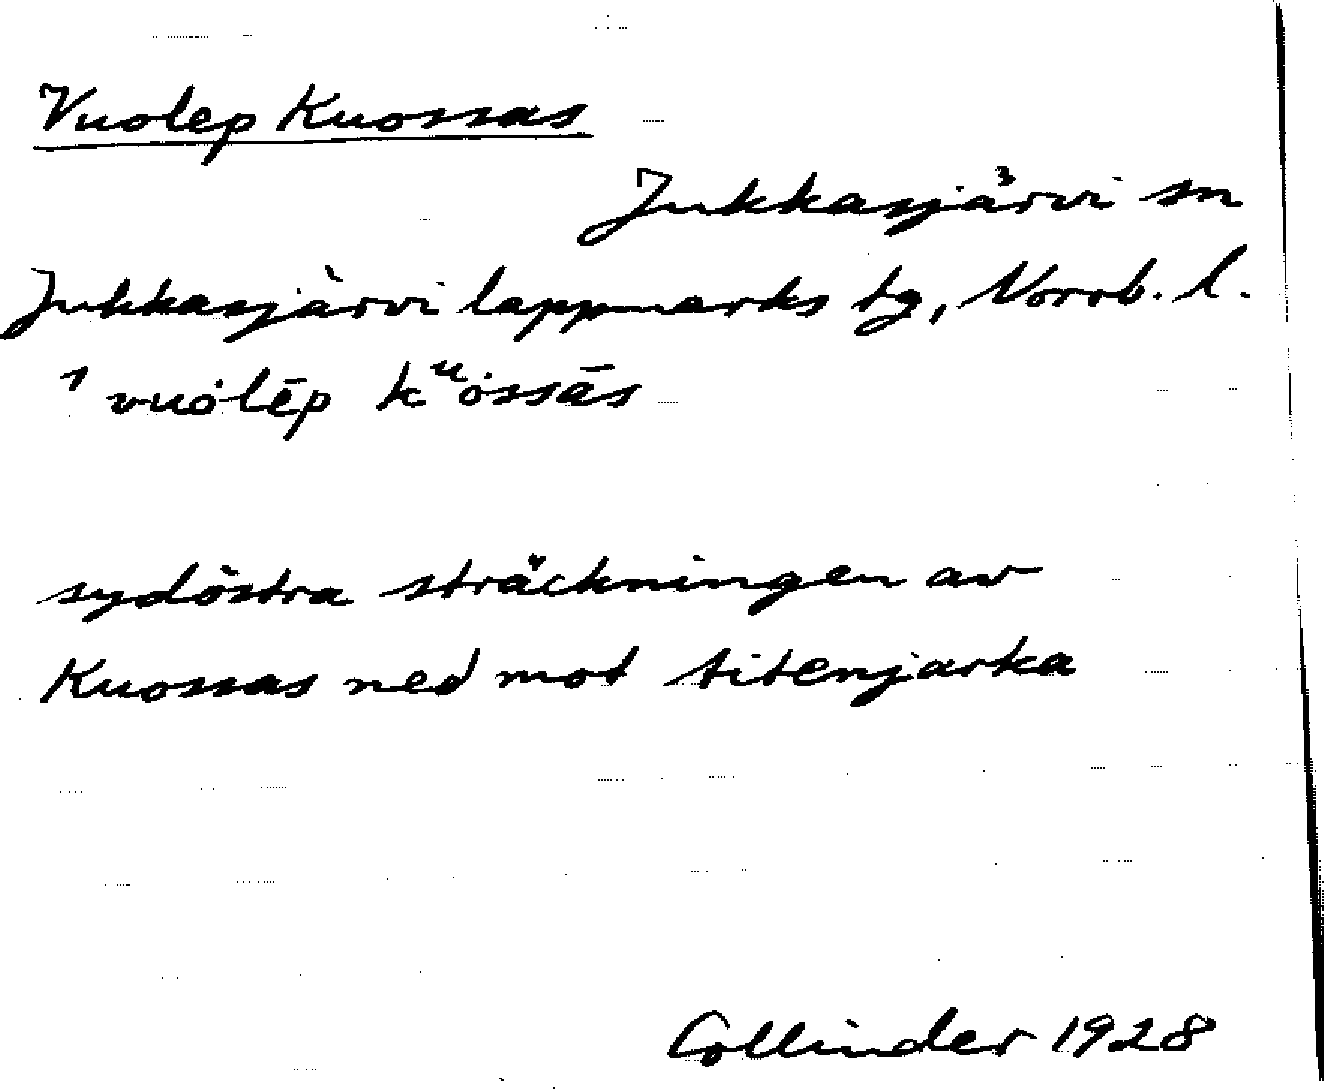 Vuolep Kuossas
Jukkasjärvi sn
Jukkasjärvi lappmarks tg, Norrb. l.
1 vuȯlēp kᵘȯssās
sydöstra sträckningen av
Kuossas ned mot titenjarka
Collinder 1928